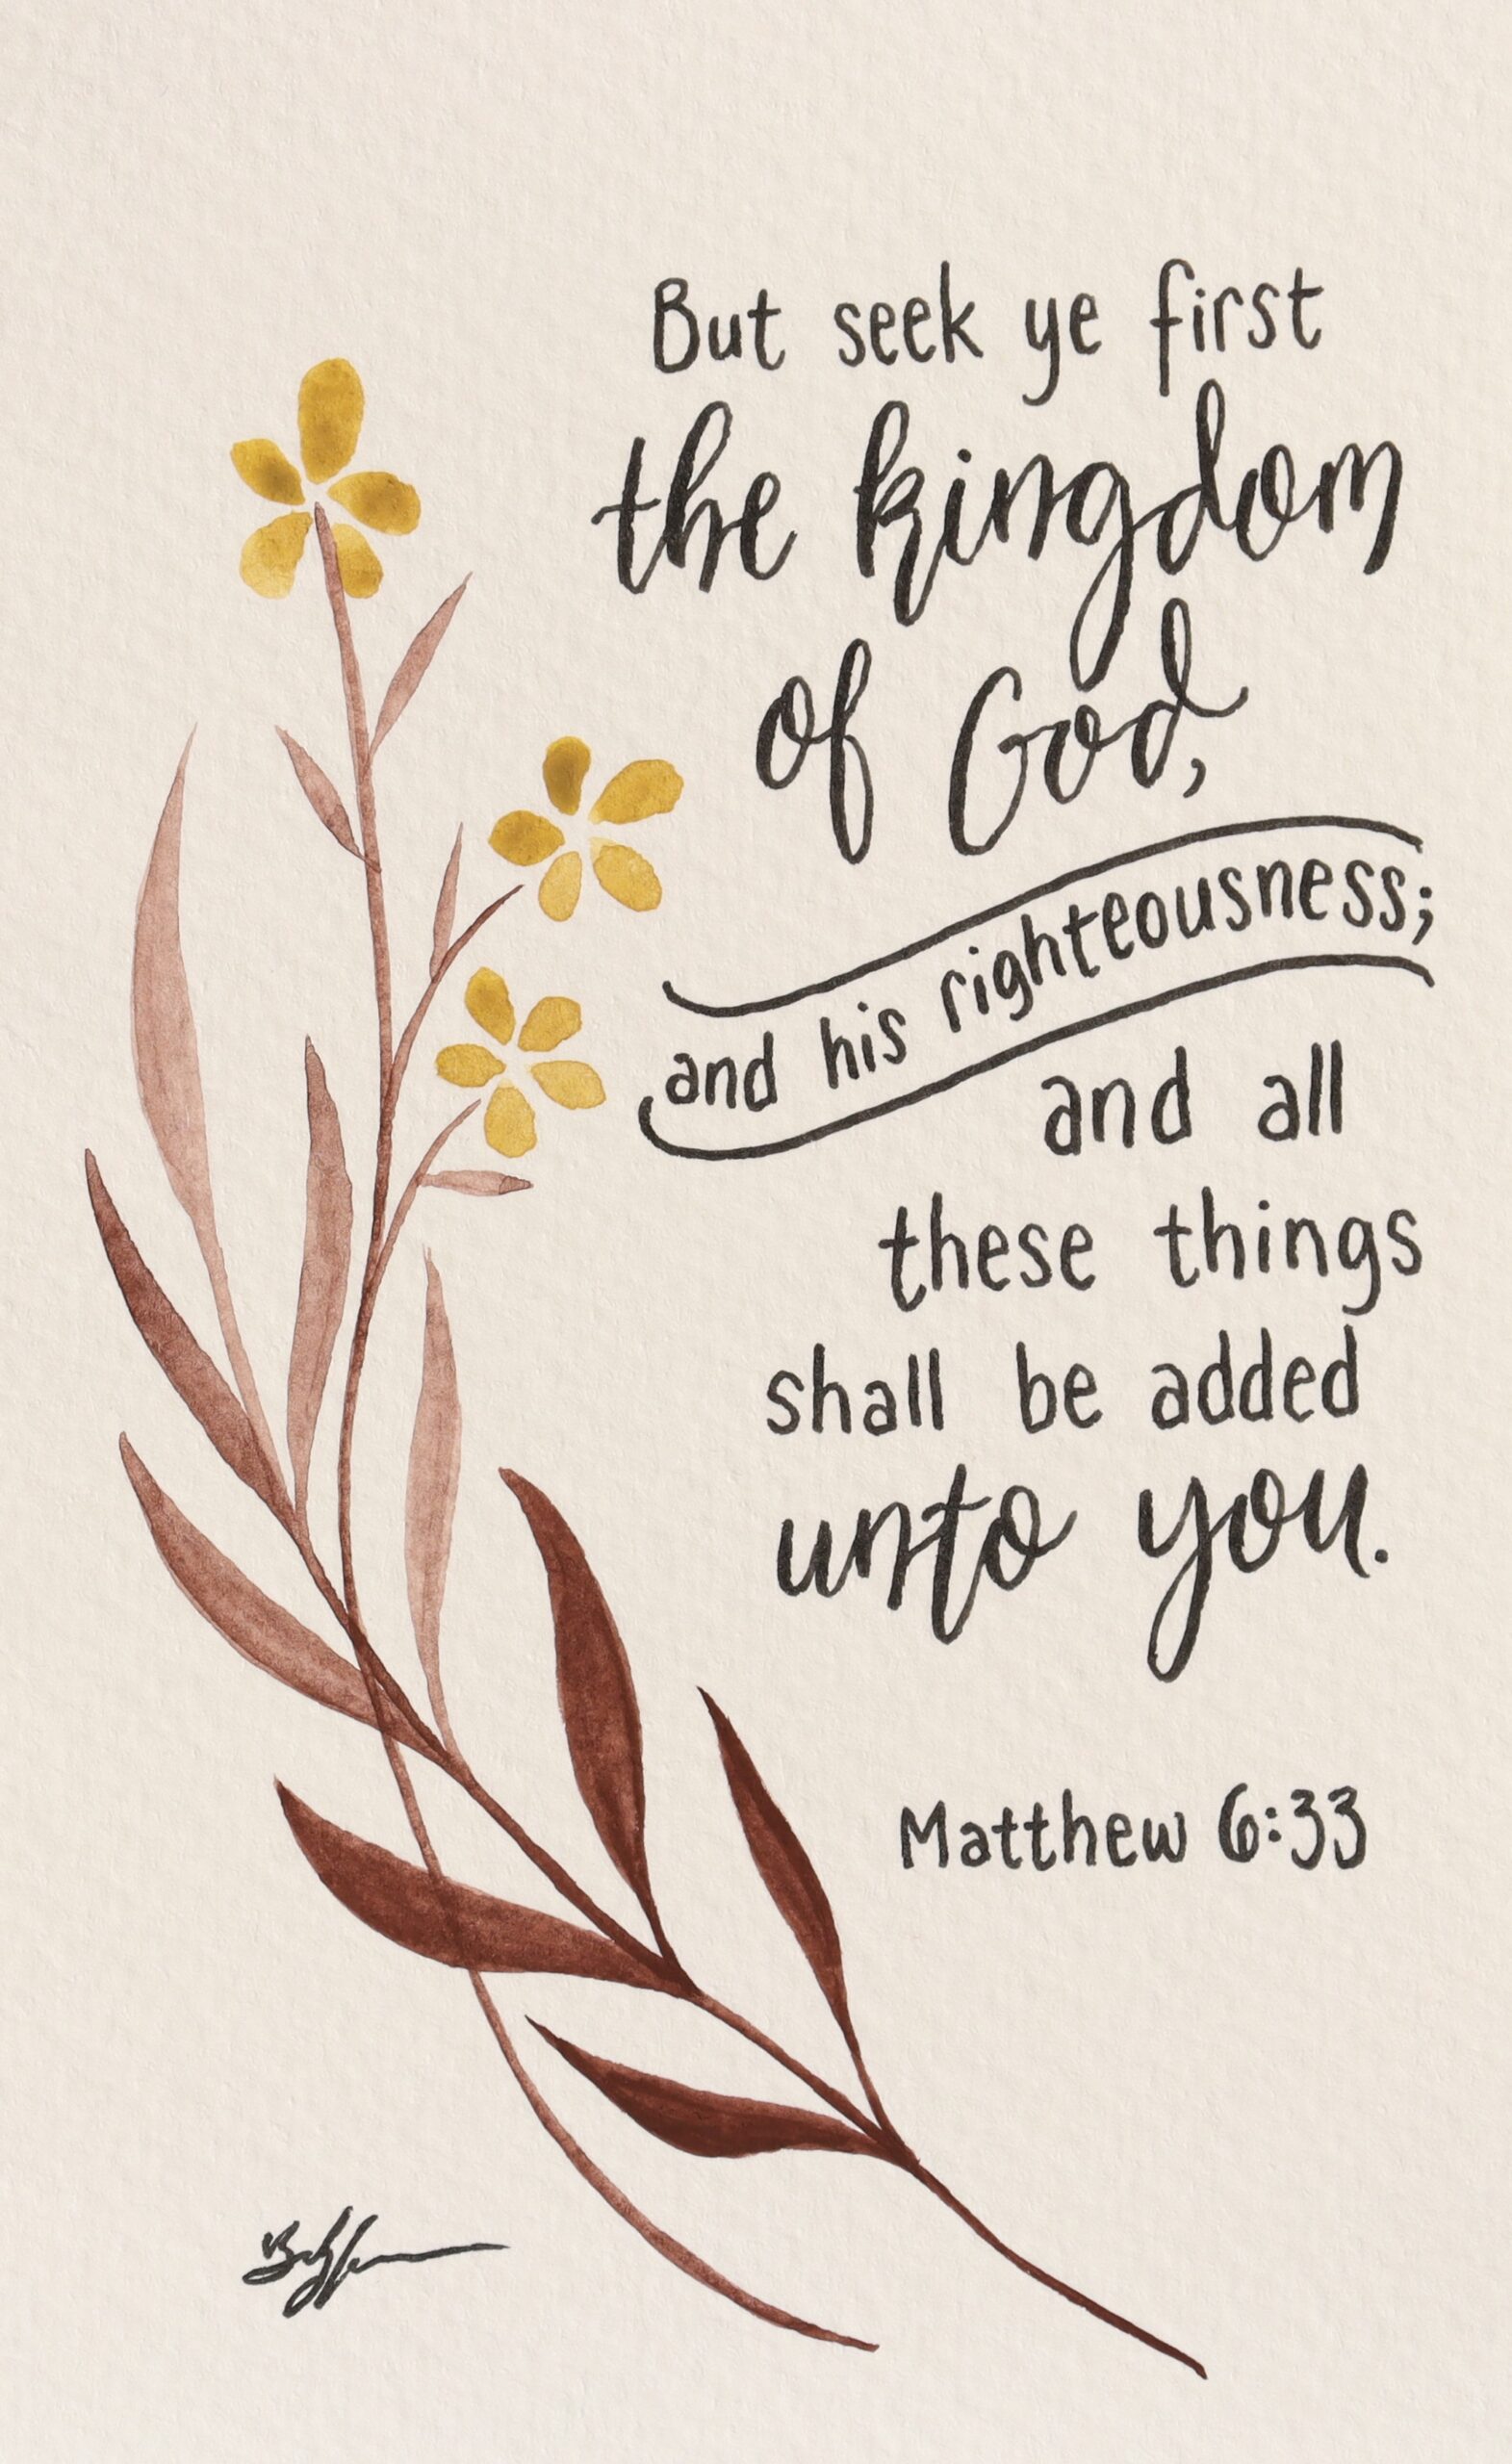 But seek ye first
the kingdom
of God,
and his righteousness;
and all
these things
shall be added
unto you.
Matthew 6:33